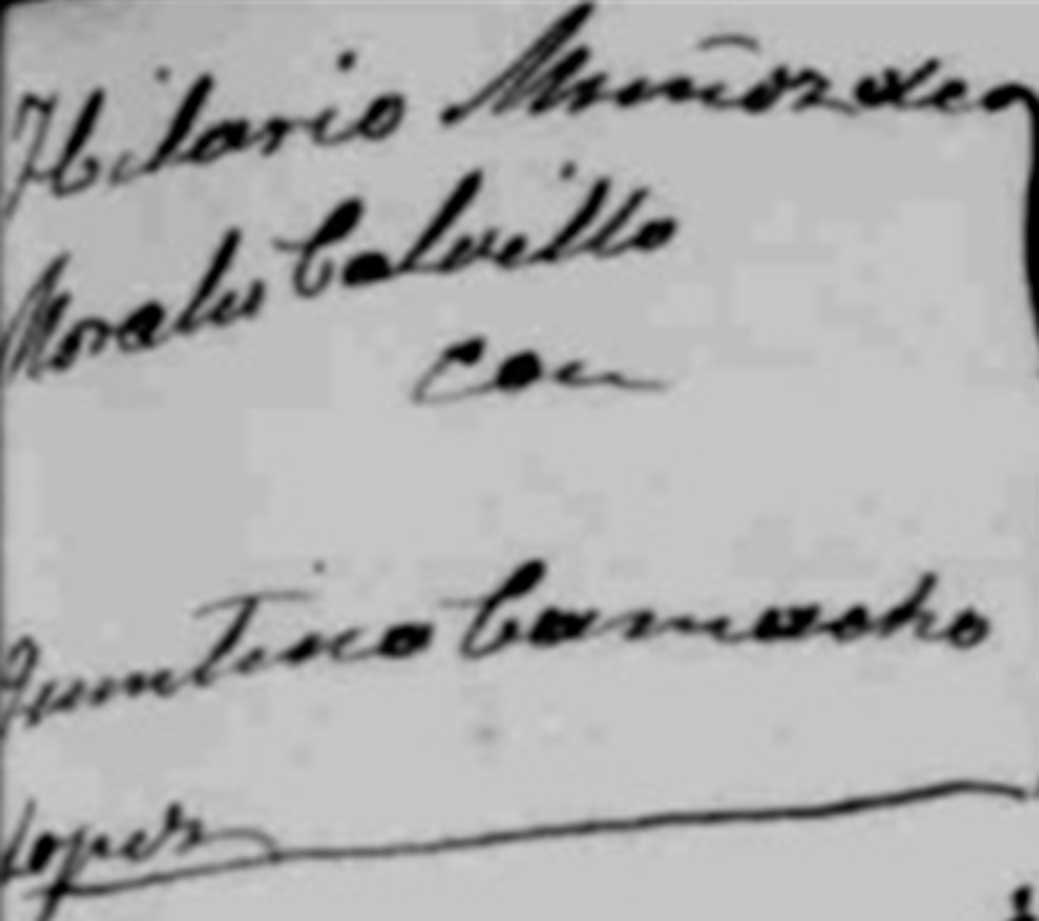 Hilario Muñoz de
Morales Calvillo
con
Camacho
Lopez